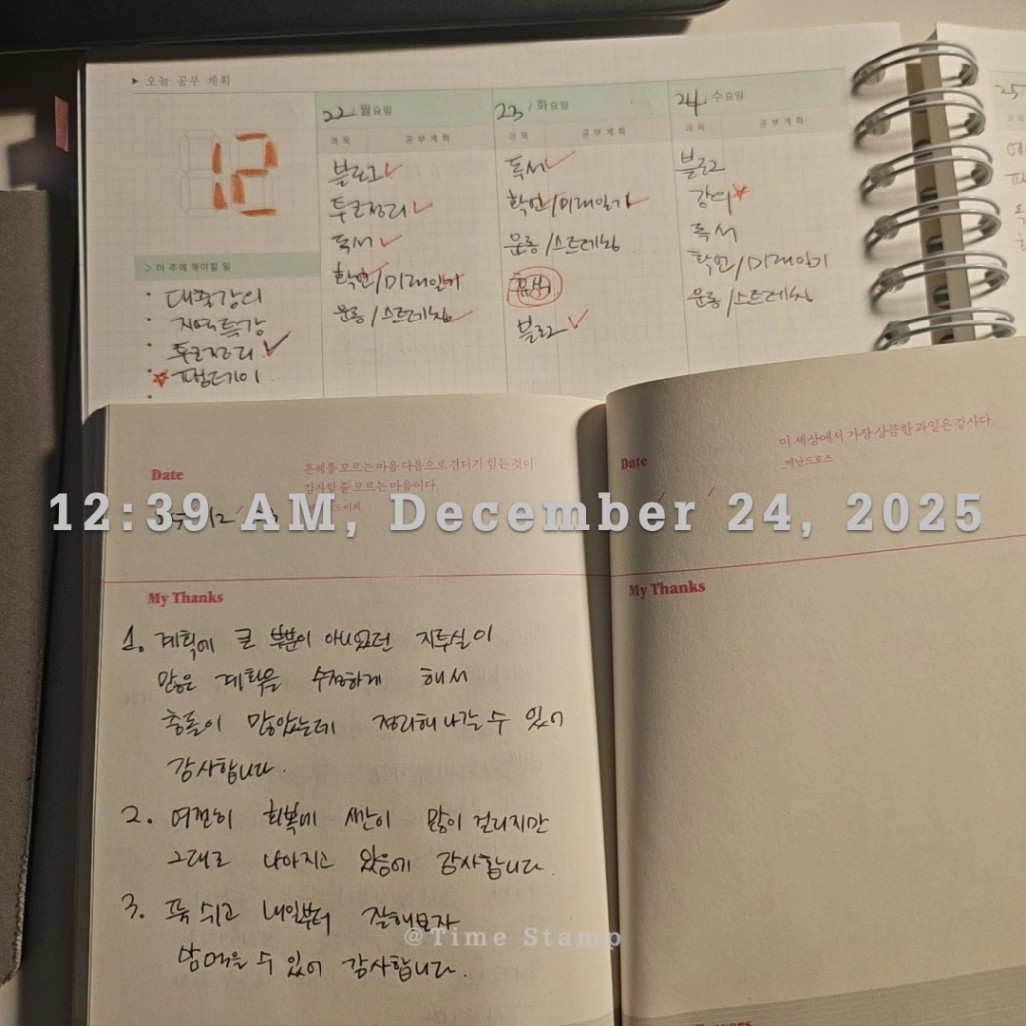 ▶ 오늘 공부 계획
12
> 이 주에 해야할 일
• 대출강의
• 지역특강
• 투자정리 ✓
★ 팸데이
22 / 월요일
과목 공부계획
블로그 ✓
투자정리 ✓
독서 ✓
확언/미래일기
운동/스트레칭
23 / 화요일
과목 공부계획
독서 ✓
확언/미래일기
운동/스트레칭
휴식
블로그 ✓
24 / 수요일
과목 공부계획
블로그
강의 ★
독서
확언/미래일기
운동/스트레칭
25
Date
은혜를 모르는 마음 다음으로 견디기 힘든 것이
감사할 줄 모르는 마음이다.
12
My Thanks
1. 계획에 큰 부분이 아니었던 지투실이
많은 계획을 수정하게 해서
충돌이 많았는데 정리해 나갈 수 있어
감사합니다.
2. 여전히 회복에 시간이 많이 걸리지만
그대로 나아지고 있음에 감사합니다.
3. 푹 쉬고 내일부터 잘해보자
맘먹을 수 있어 감사합니다.
이 세상에서 가장 상큼한 과일은 감사다.
_메난드로스
Date
My Thanks
12:39 AM, December 24, 2025
@Time Stamp